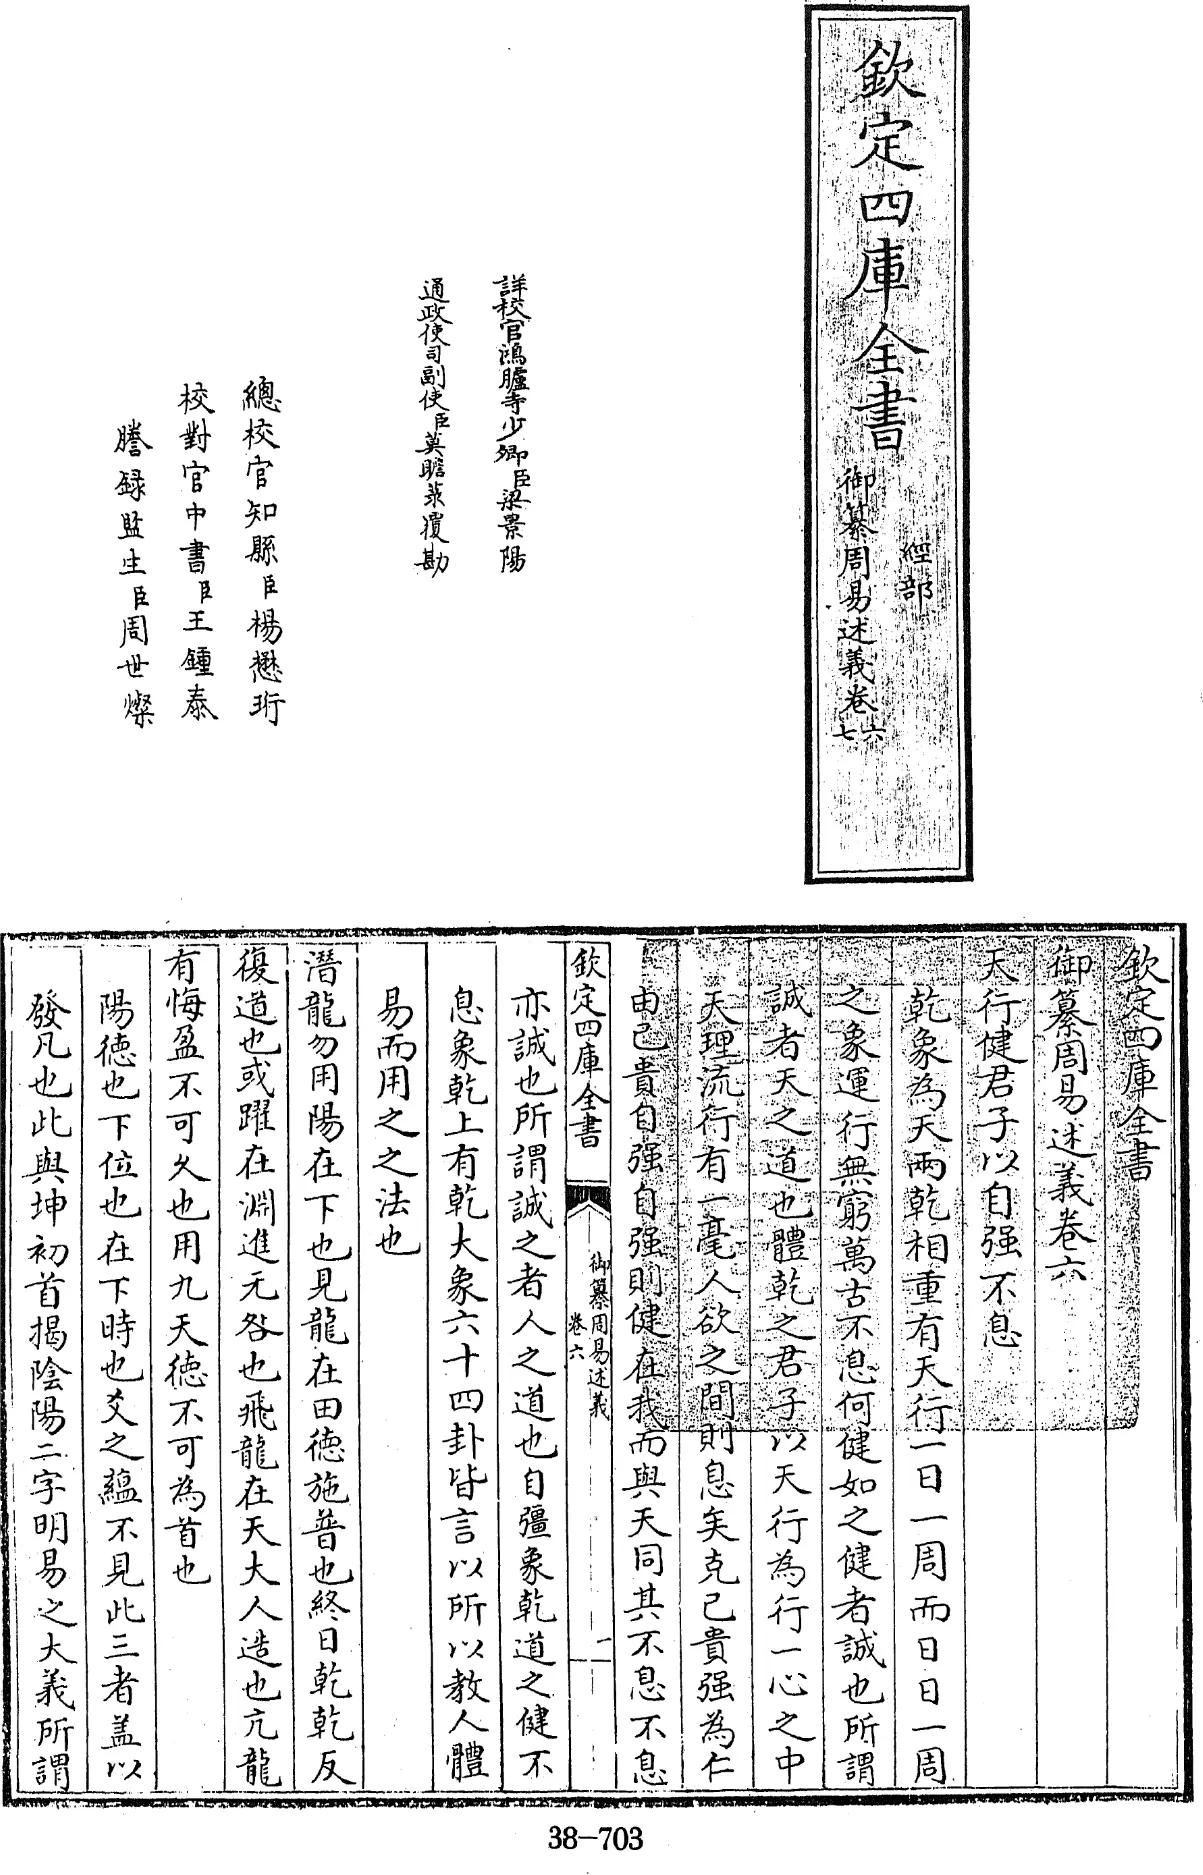 欽定四庫全書
經部
御纂周易述義卷六
七
詳校官鴻臚寺少卿臣梁景陽
通政使司副使臣莫瞻菉覆勘
總校官知縣臣楊懋珩
校對官中書臣王鍾泰
謄録監生臣周世燦
欽定四庫全書
御纂周易述義卷六
天行健君子以自强不息
乾象為天兩乾相重有天行一日一周而日日一周
之象運行無窮萬古不息何健如之健者誠也所謂
誠者天之道也體乾之君子以天行為行一心之中
天理流行有一毫人欲之間則息矣克己貴强為仁
由己貴自强自强則健在我而與天同其不息不息
欽定四庫全書
御纂周易述義
卷六
一
亦誠也所謂誠之者人之道也自彊象乾道之健不
息象乾上有乾大象六十四卦皆言以所以教人體
易而用之之法也
潛龍勿用陽在下也見龍在田德施普也終日乾乾反
復道也或躍在淵進无咎也飛龍在天大人造也亢龍
有悔盈不可久也用九天德不可為首也
陽德也下位也在下時也爻之蘊不見此三者盖以
發凡也此與坤初首揭陰陽二字明易之大義所謂
38-703